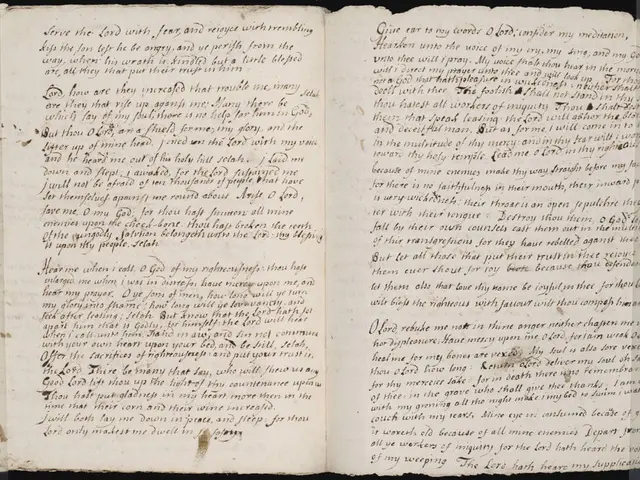 Serve the Lord with fear, and rejoyce with trembling
kiss the son lest he be angry, and ye perish, from the
way, when his wrath is kindled but a little blessed
are, all they that put their trust in him
Lord, how are they increased that trouble me, many
are they that rise up against me: Many there be selah
which say of my soul, there is no help for him in God,
But thou O Lord, art a shield, for me, my glory, and the
lifter up of mine head, I cried on the Lord with my voice
and he heard me out of his holy hill selah. I laid me
down and slept; i awaked, for the Lord sustained me
I will not be afraid of ten thousands of people, that have
set themselves against me round about Arise O Lord,
save me, O my God, for thou hast smitten all mine
enemies upon the cheek-bone, thou hast broken the teeth
of the ungodly, salvation belongeth unto the Lord: thy blessing
is upon thy people, Selah
Hear me when i call, O God of my righteousness: thou hast
inlarged me when i was in distress, have mercy upon me, and
hear my prayer. O ye sons of men, how long will ye turn
my glory into shame: how long will ye love vanity, and
seek after leasing; Selah. But know that the Lord hath set
apart him that is Godly, for himself the Lord will hear
when I call unto him Stand in awe, and sin not commune
with your own heart upon your bed, and be still, selah,
Offer the sacrifices of righteousness: and put your trust in
the Lord There be many that say, who will shew us any
Good Lord lift thou up the light of thy countenance upon us
Thou hast put gladness in my heart more then in the
time that their corn and their wine increased.
I will both lay me down in peace, and sleep: for thou
Lord only makest me dwell in safety
Give ear to my words O Lord, consider my meditation,
Hearken unto the voice of my cry, my king, and my God
unto thee will I pray. My voice shalt thou hear in the morn
will i direct my prayer unto thee and will look up. For thou
not a God that hath pleasure in wickedness: neither shall
dwell with thee The foolish shall not stand in thy
thou hatest all workers of iniquity Thou shalt destroy
them that speak leasing: the Lord will abhor the bloo
and deceitful man. But as for me, i will come into
in the multitude of thy mercy: and in thy fear will i
toward thy holy temple. Lead me O Lord in thy right
because of mine enemies make thy way straight before my fa
for there is no faithfulness in their mouth, their inward p
is very wickedness: their throat is an open sepulchre the
ter with their tongue Destroy thou them, O God
fall by their own counsels cast them out in the multi
of their transgressions for they have rebelled against thee
But let all those that put their trust in thee rejoyce
them ever shout for joy because, thou defendes
let them also that love thy name be joyful in thee for thou
wilt bless the righteous with favour wilt thou compass him
O Lord, rebuke me not in thine anger neither chasten me
hot displeasure. Have mercy upon me, O Lord, for i am weak O
heal me for my bones are vexed. My soul is also sore vexed
thou O Lord how long: Return O Lord deliver my soul oh
for thy mercies sake. for in death there is no remembran
of thee: in the grave who shall give thee thanks. I am
with my groning all the night make i my bed to swim; i wat
couch with my tears. Mine eye is consumed because of
it waxeth old because of all mine enemies Depart from
all ye workers of iniquity for the Lord hath heard the vo
of my weeping The Lord hath heard my supplication